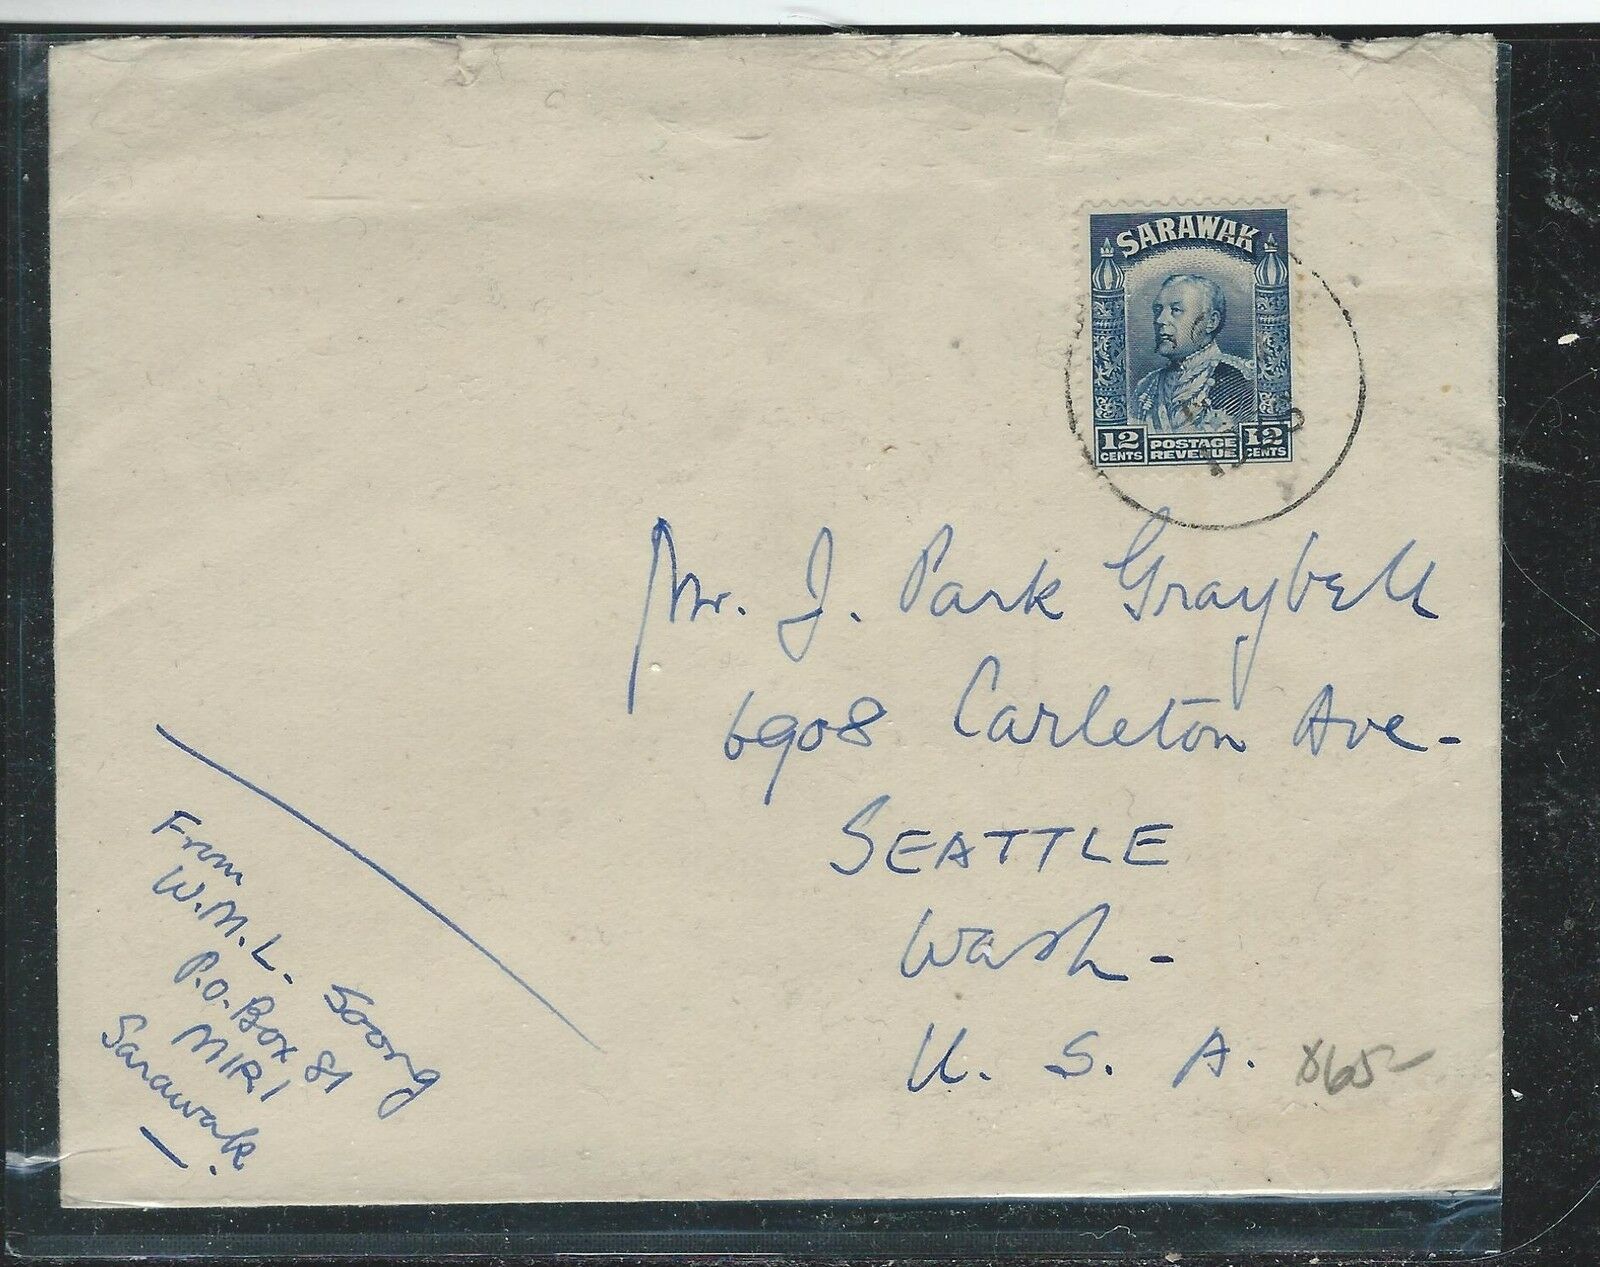 SARAWAK
12 CENTS POSTAGE REVENUE 12 CENTS
Mr. J. Park Graybell
6908 Carleton Ave-
SEATTLE
Wash-
U. S. A.
From
W.M.L. Soong
P.O. Box 81
MIRI
Sarawak.